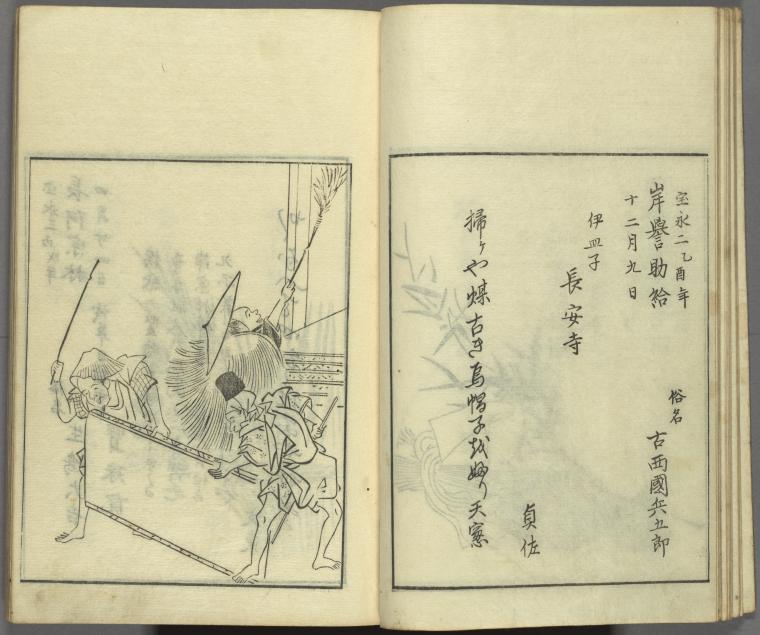 宝永二乙酉年
岸誉助給 俗名 古西國兵五郎
十二月九日
伊皿子
長安寺
貞佐
掃ヶや煤古き烏帽子越
天窓